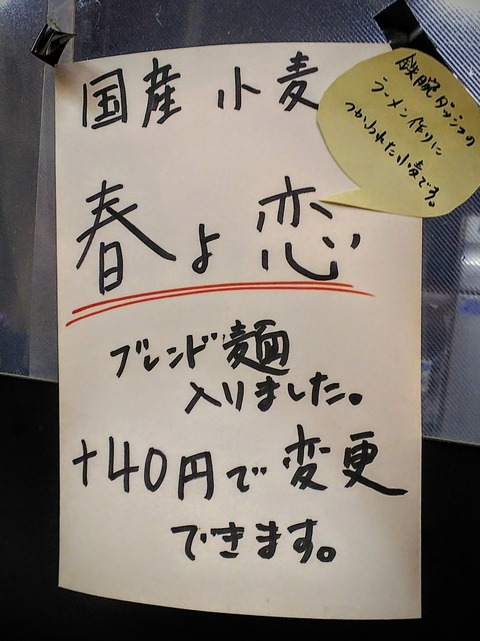 国産 小麦
鉄腕ダッシュの
ラーメン作りに
つかわれた小麦です。
春よ恋
ブレンド麺
入りました。
+40円で変更
できます。